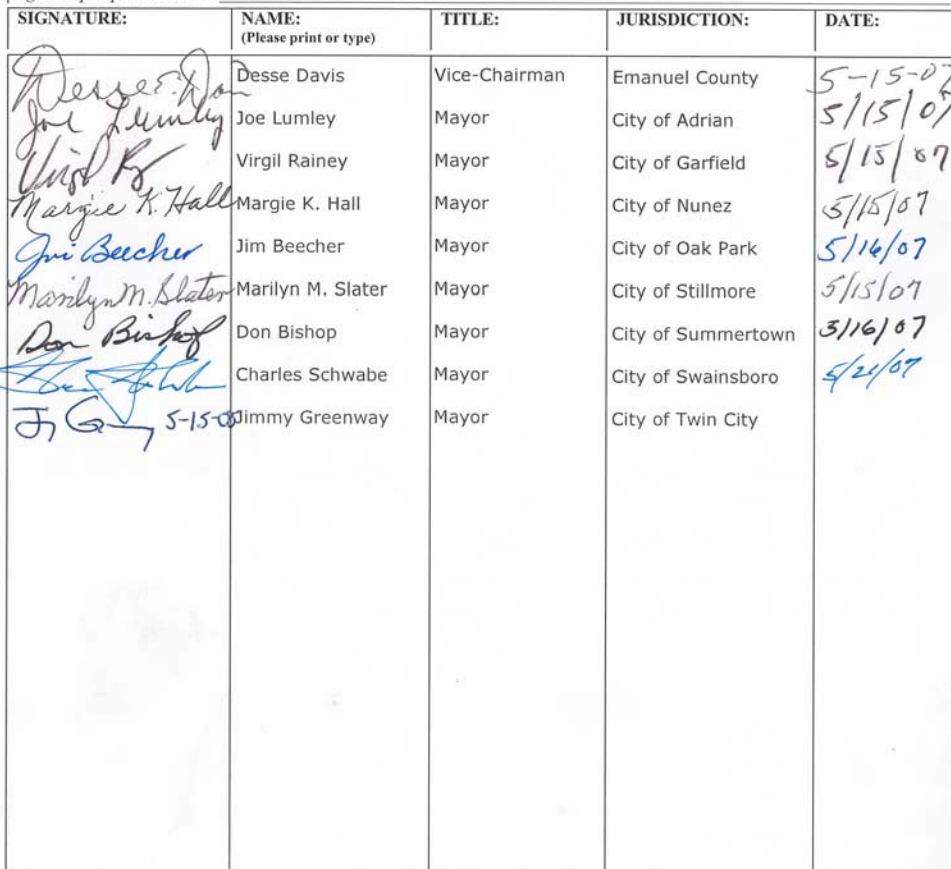 SIGNATURE: NAME: TITLE: JURISDICTION: DATE:
(Please print or type)
Desse E. Desse Davis Vice-Chairman Emanuel County 5-15-07
Joe Lumley Joe Lumley Mayor City of Adrian 5/15/07
Virgil Virgil Rainey Mayor City of Garfield 5/15/07
Margie K. Hall Margie K. Hall Mayor City of Nunez 5/15/07
Jim Beecher Jim Beecher Mayor City of Oak Park 5/16/07
Marilyn M. Slater Marilyn M. Slater Mayor City of Stillmore 5/15/07
Don Bishop Don Bishop Mayor City of Summertown 3/16/07
Charles Schwabe Mayor City of Swainsboro 5/21/07
5-15-0 Jimmy Greenway Mayor City of Twin City